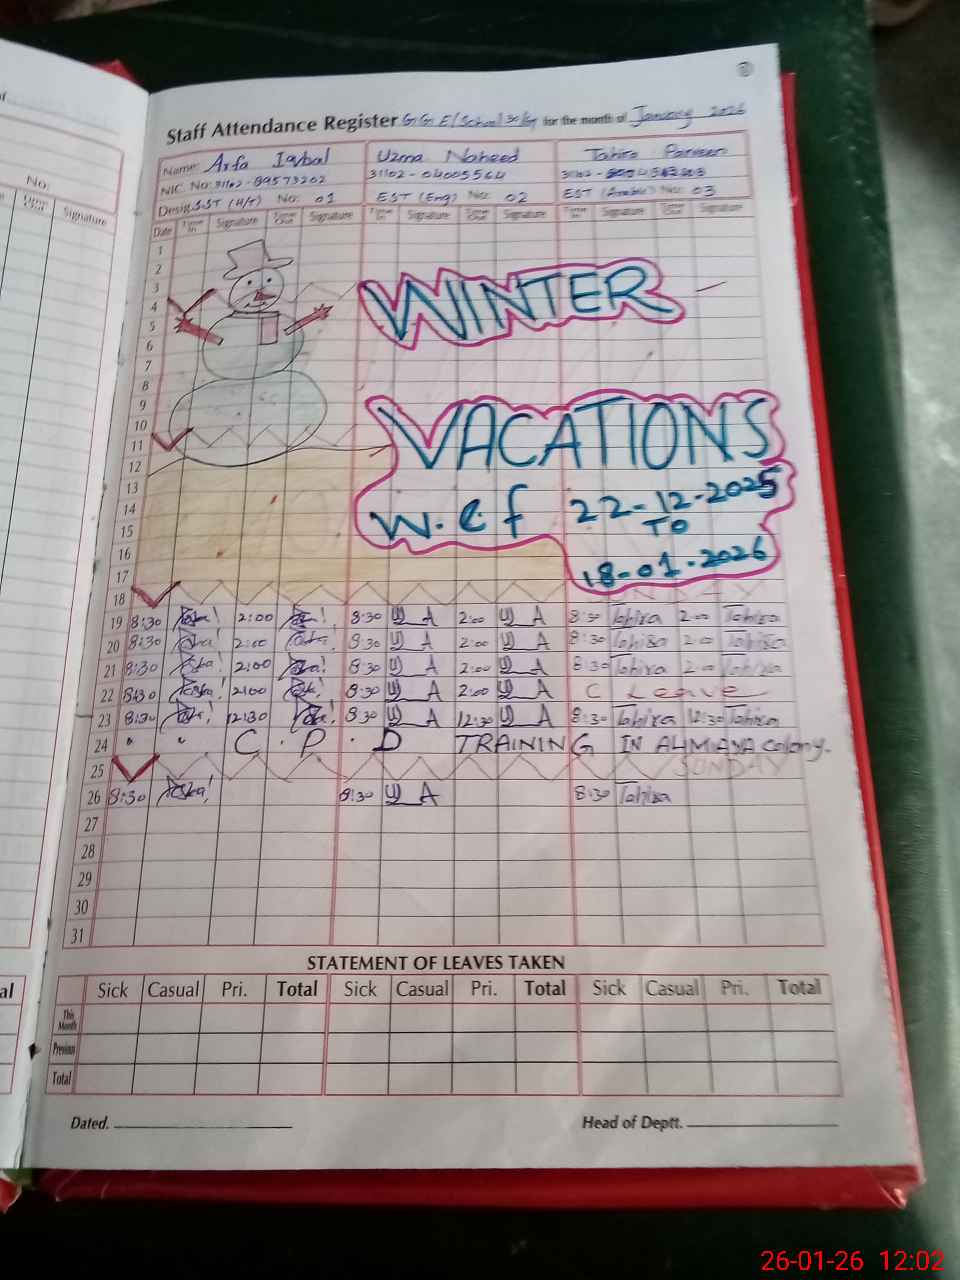 Staff Attendance Register G G E/School 30/G for the month of January 2026
Name: Arfa Iqbal Uzma Naheed Tahira Parveen
NIC No: 31102-89573202 31102-04005564 31102-
Desig. SST (H/T) No: 01 EST (Eng) No: 02 EST (Arabic) No: 03
Date Time In Signature Time Out Signature Time In Signature Time Out Signature Time In Signature Time Out Signature
1
2
3 WINTER
4
5
6
7
8
9
10 VACATIONS
11
12
13
14 w.e.f 22-12-2025
15 TO
16 18-01-2026
17
18 SUNDAY
19 8:30 2:00 8:30 U A 2:00 U A 8:30 Tahira 2:00 Tahira
20 8:30 2:00 8:30 U A 2:00 U A 8:30 Tahira 2:00 Tahira
21 8:30 2:00 8:30 U A 2:00 U A 8:30 Tahira 2:00 Tahira
22 8:30 2:00 8:30 U A 2:00 U A C Leave
23 8:30 12:30 8:30 U A 12:30 U A 8:30 Tahira 12:30 Tahira
24 " " C.P.D TRAINING IN colony.
25 SUNDAY
26 8:30 8:30 U A 8:30 Tahira
27
28
29
30
31
STATEMENT OF LEAVES TAKEN
Sick Casual Pri. Total Sick Casual Pri. Total Sick Casual Pri. Total
This Month
Previous
Total
Dated. Head of Deptt.
No:
Signature
26-01-26 12:02